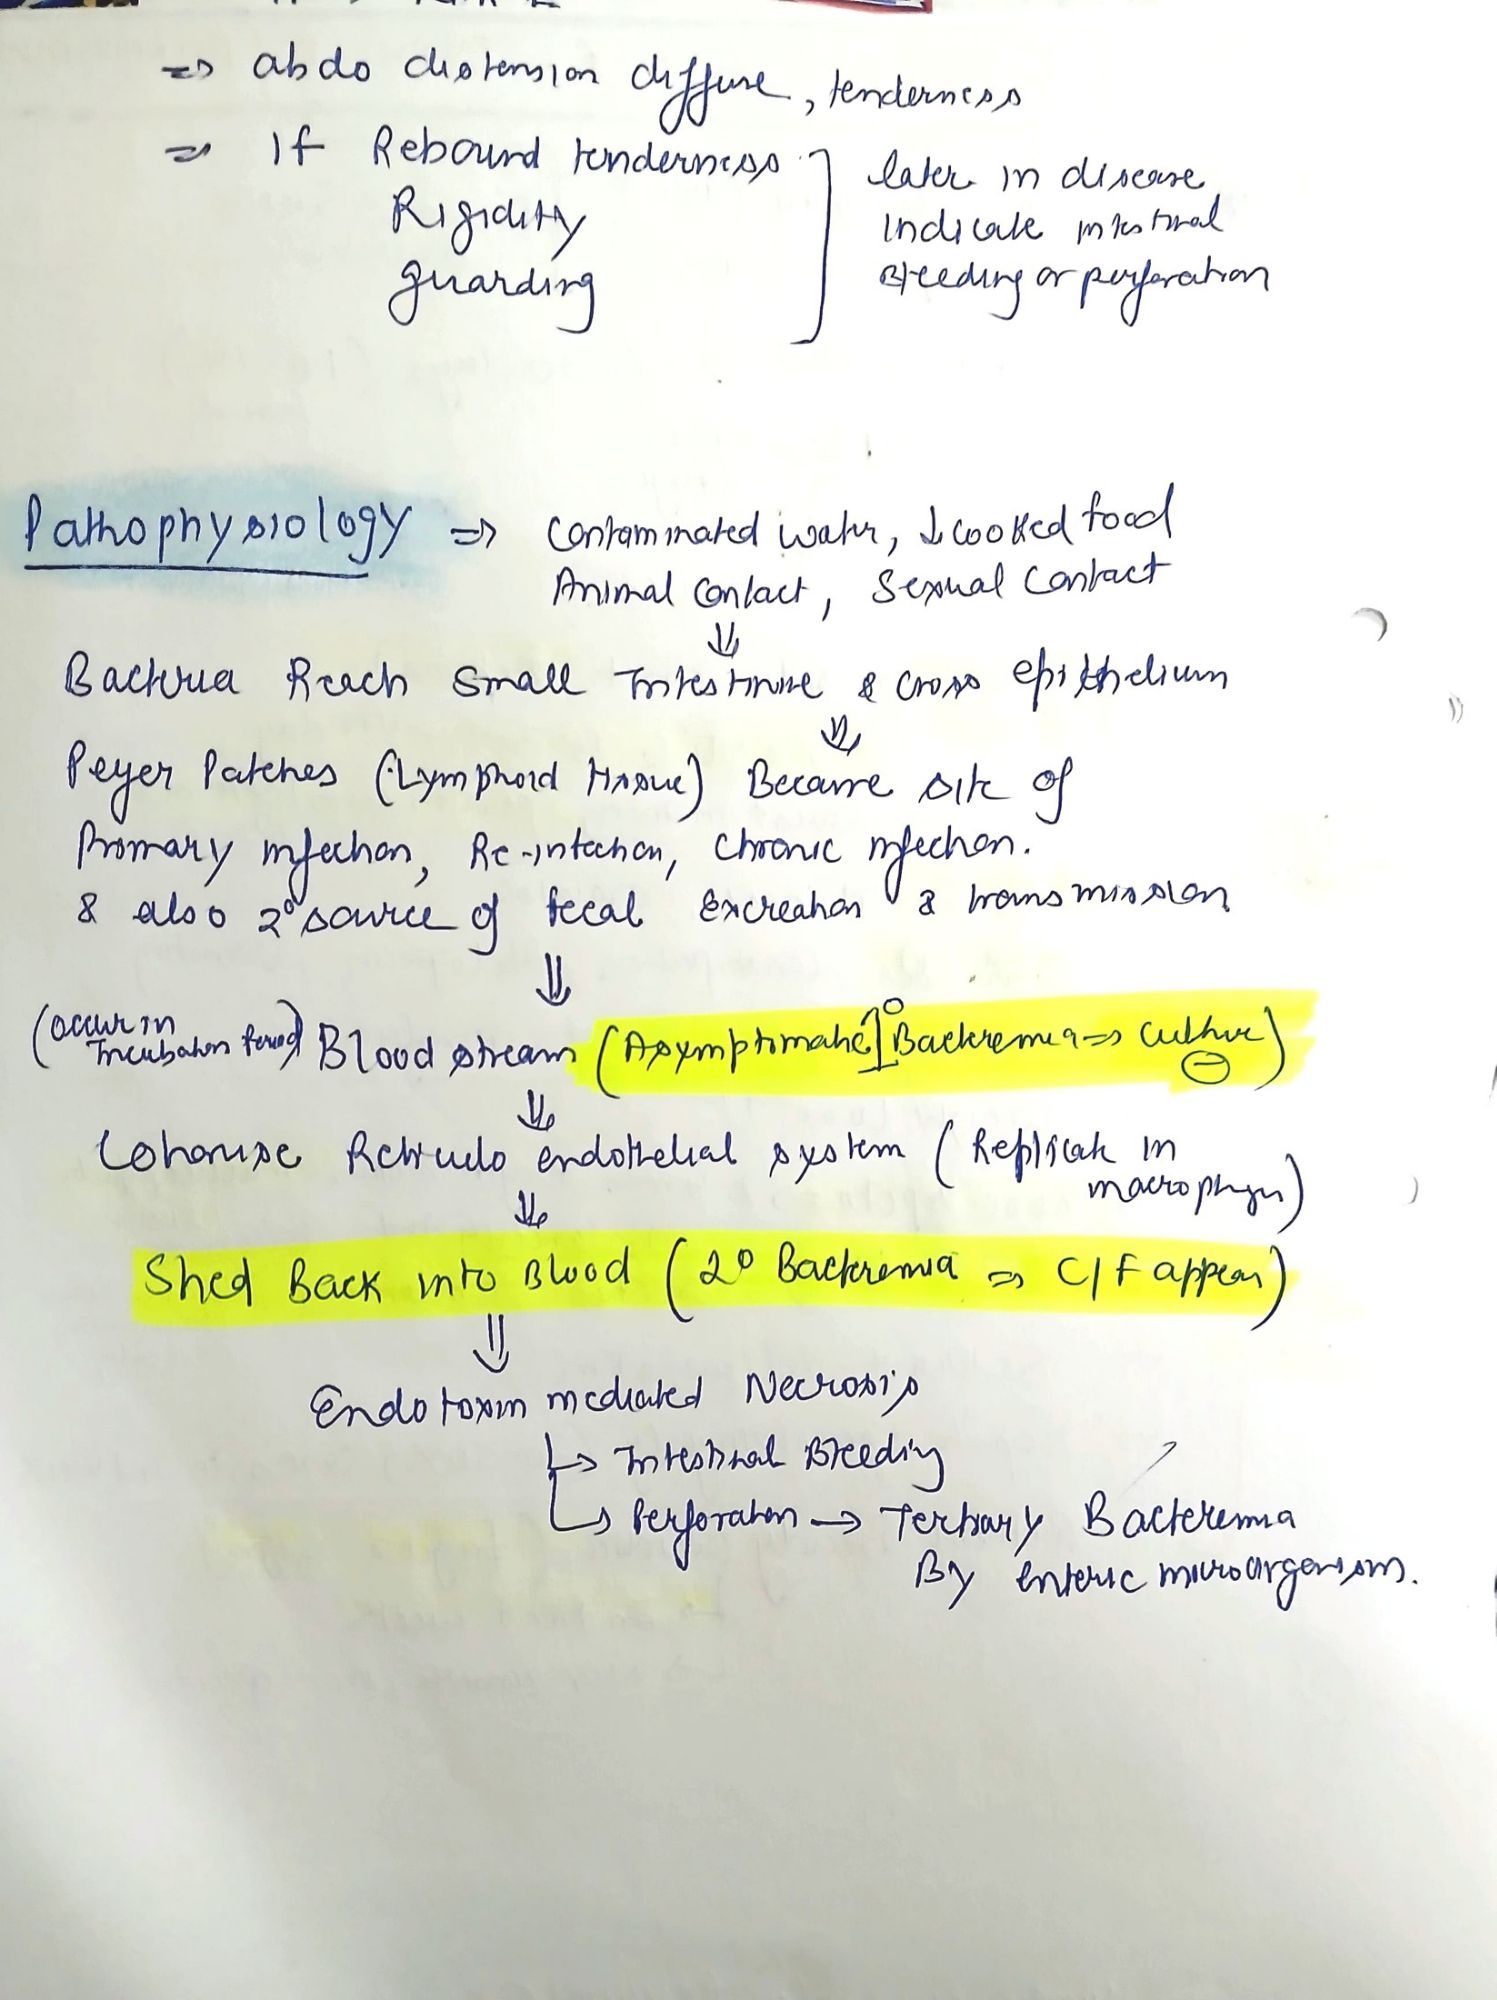 ⇒ abdo distension diffuse, tenderness
⇒ If Rebound tenderness
Rigidity
guarding
later in disease
Indicate intestinal
Bleeding or perforation
Pathophysiology ⇒ Contaminated water, ↓ cooked food
Animal Contact, Sexual Contact
⇓
Bacteria Reach Small Intestine & cross epithelium
⇓
Peyer Patches (Lymphoid tissue) Became site of
Primary infection, Re-infection, chronic infection.
& also 2° source of fecal excreation & transmission
⇓
(occur in Incubation Period) Blood stream (Asymptomatic 1° Bacteremia ⇒ Culture ⊖)
⇓
Colonise Reticulo endothelial system (Replicate in
macrophages)
⇓
Shed Back into Blood (2° Bacteremia ⇒ C/F appear)
⇓
Endotoxin mediated Necrosis
↳ Intestinal Bleeding
↳ Perforation → Tertiary Bacteremia
By enteric microorganisms.